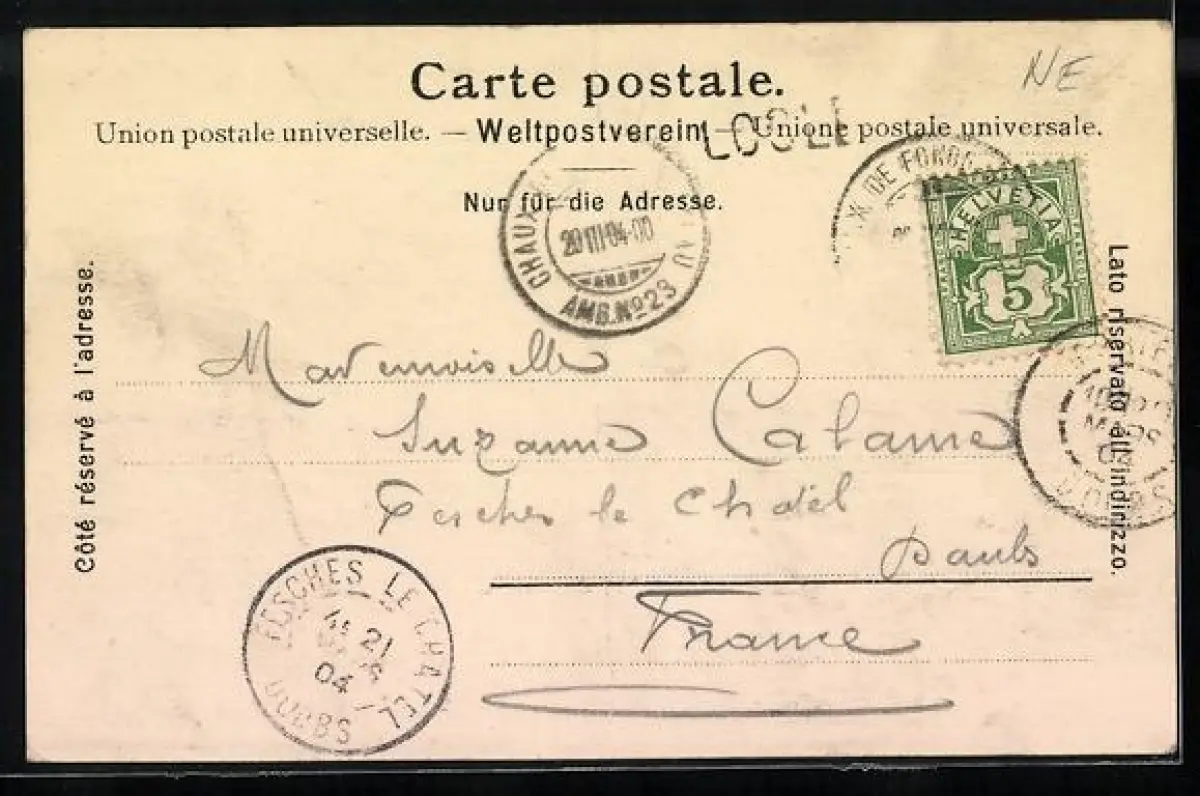 NE
Carte postale.
Union postale universelle. — Weltpostverein — Unione postale universale.
LOCLE
Nur für die Adresse.
CHAUX
20 III 04
AMB. No 23
X DE FOND
HELVETIA
5
Côté réservé à l'adresse.
Lato riservato all'indirizzo.
Mademoiselle
Suzanne Calame
Fesches le Châtel
Doubs
France
FESCHES LE CHATEL
21
04
DOUBS
MARS
DOUBS